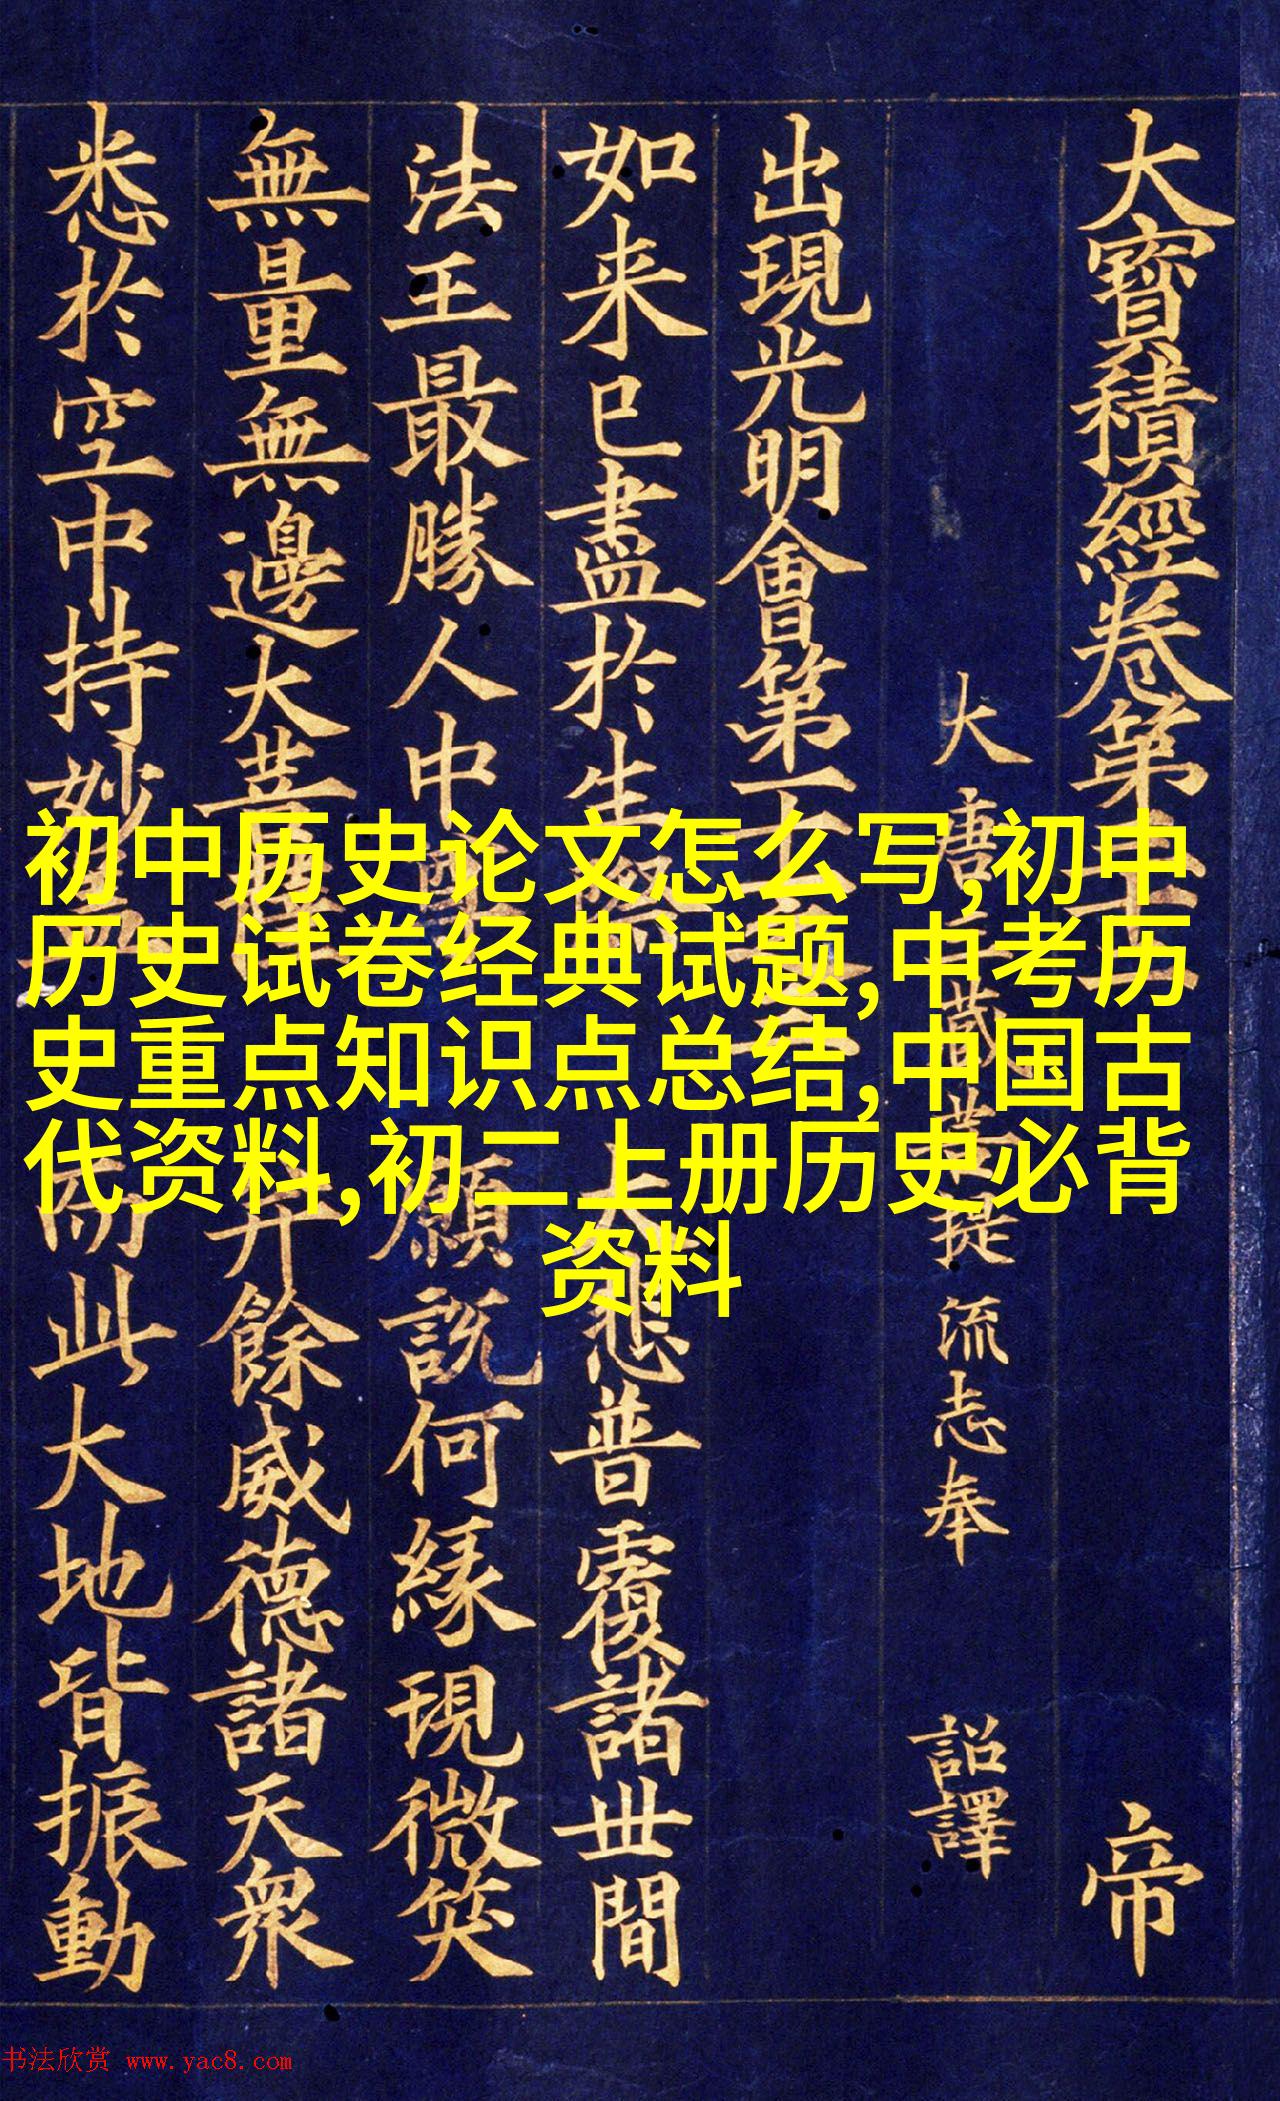 大寶積經卷第
帝
大唐三藏菩提流志奉 詔譯
出現光明會第十一之
如来已盡於生 大悲普覆諸世間
法王最勝人中 願説何縁現微笑
無量無邊大菩薩 并餘威德諸天衆
悉於空中持妙 而此大地皆振動
初中历史论文怎么写,初中
历史试卷经典试题,中考历
史重点知识点总结,中国古
代资料,初二上册历史必背
资料
书法欣赏 www.yac8.com